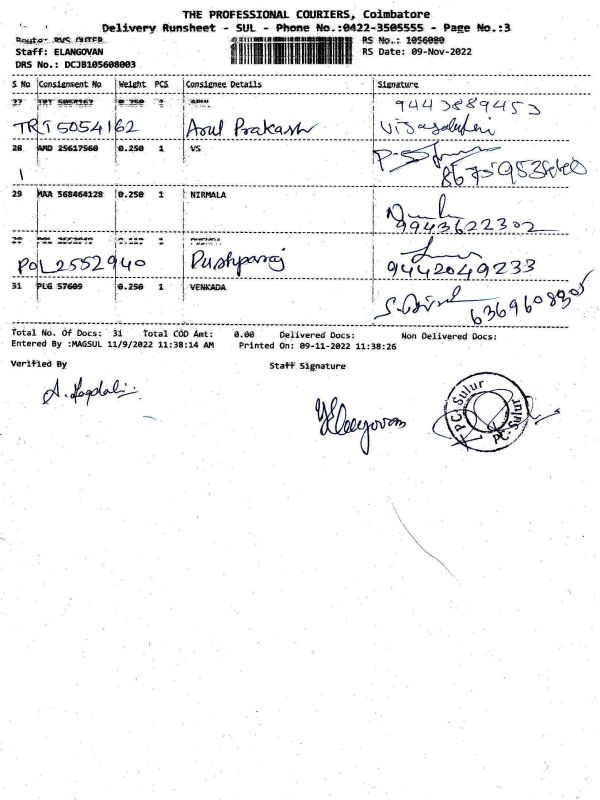 THE PROFESSIONAL COURIERS, Coimbatore
Delivery Runsheet - SUL - Phone No.:0422-3505555 - Page No.:3
Route: PVS OUTER
RS No.: 1056080
Staff: ELANGOVAN
RS Date: 09-Nov-2022
DRS No.: DCJB105608003
S No Consignment No Weight PCS Consignee Details Signature
27 TRT 5054162 0.250 1 9443889453
TRT5054162 Arul Prakash
28 AMD 25617560 0.250 1 VS
29 MAA 568464128 0.250 1 NIRMALA
9943622302
POL 2552940 Pushparaj 9442049233
31 PLG 57609 0.250 1 VENKADA
6369608305
Total No. Of Docs: 31 Total COD Amt: 0.00 Delivered Docs: Non Delivered Docs:
Entered By :MAGSUL 11/9/2022 11:38:14 AM Printed On: 09-11-2022 11:38:26
Verified By Staff Signature
Elangovan
PC-Sulur
PC-Sulur